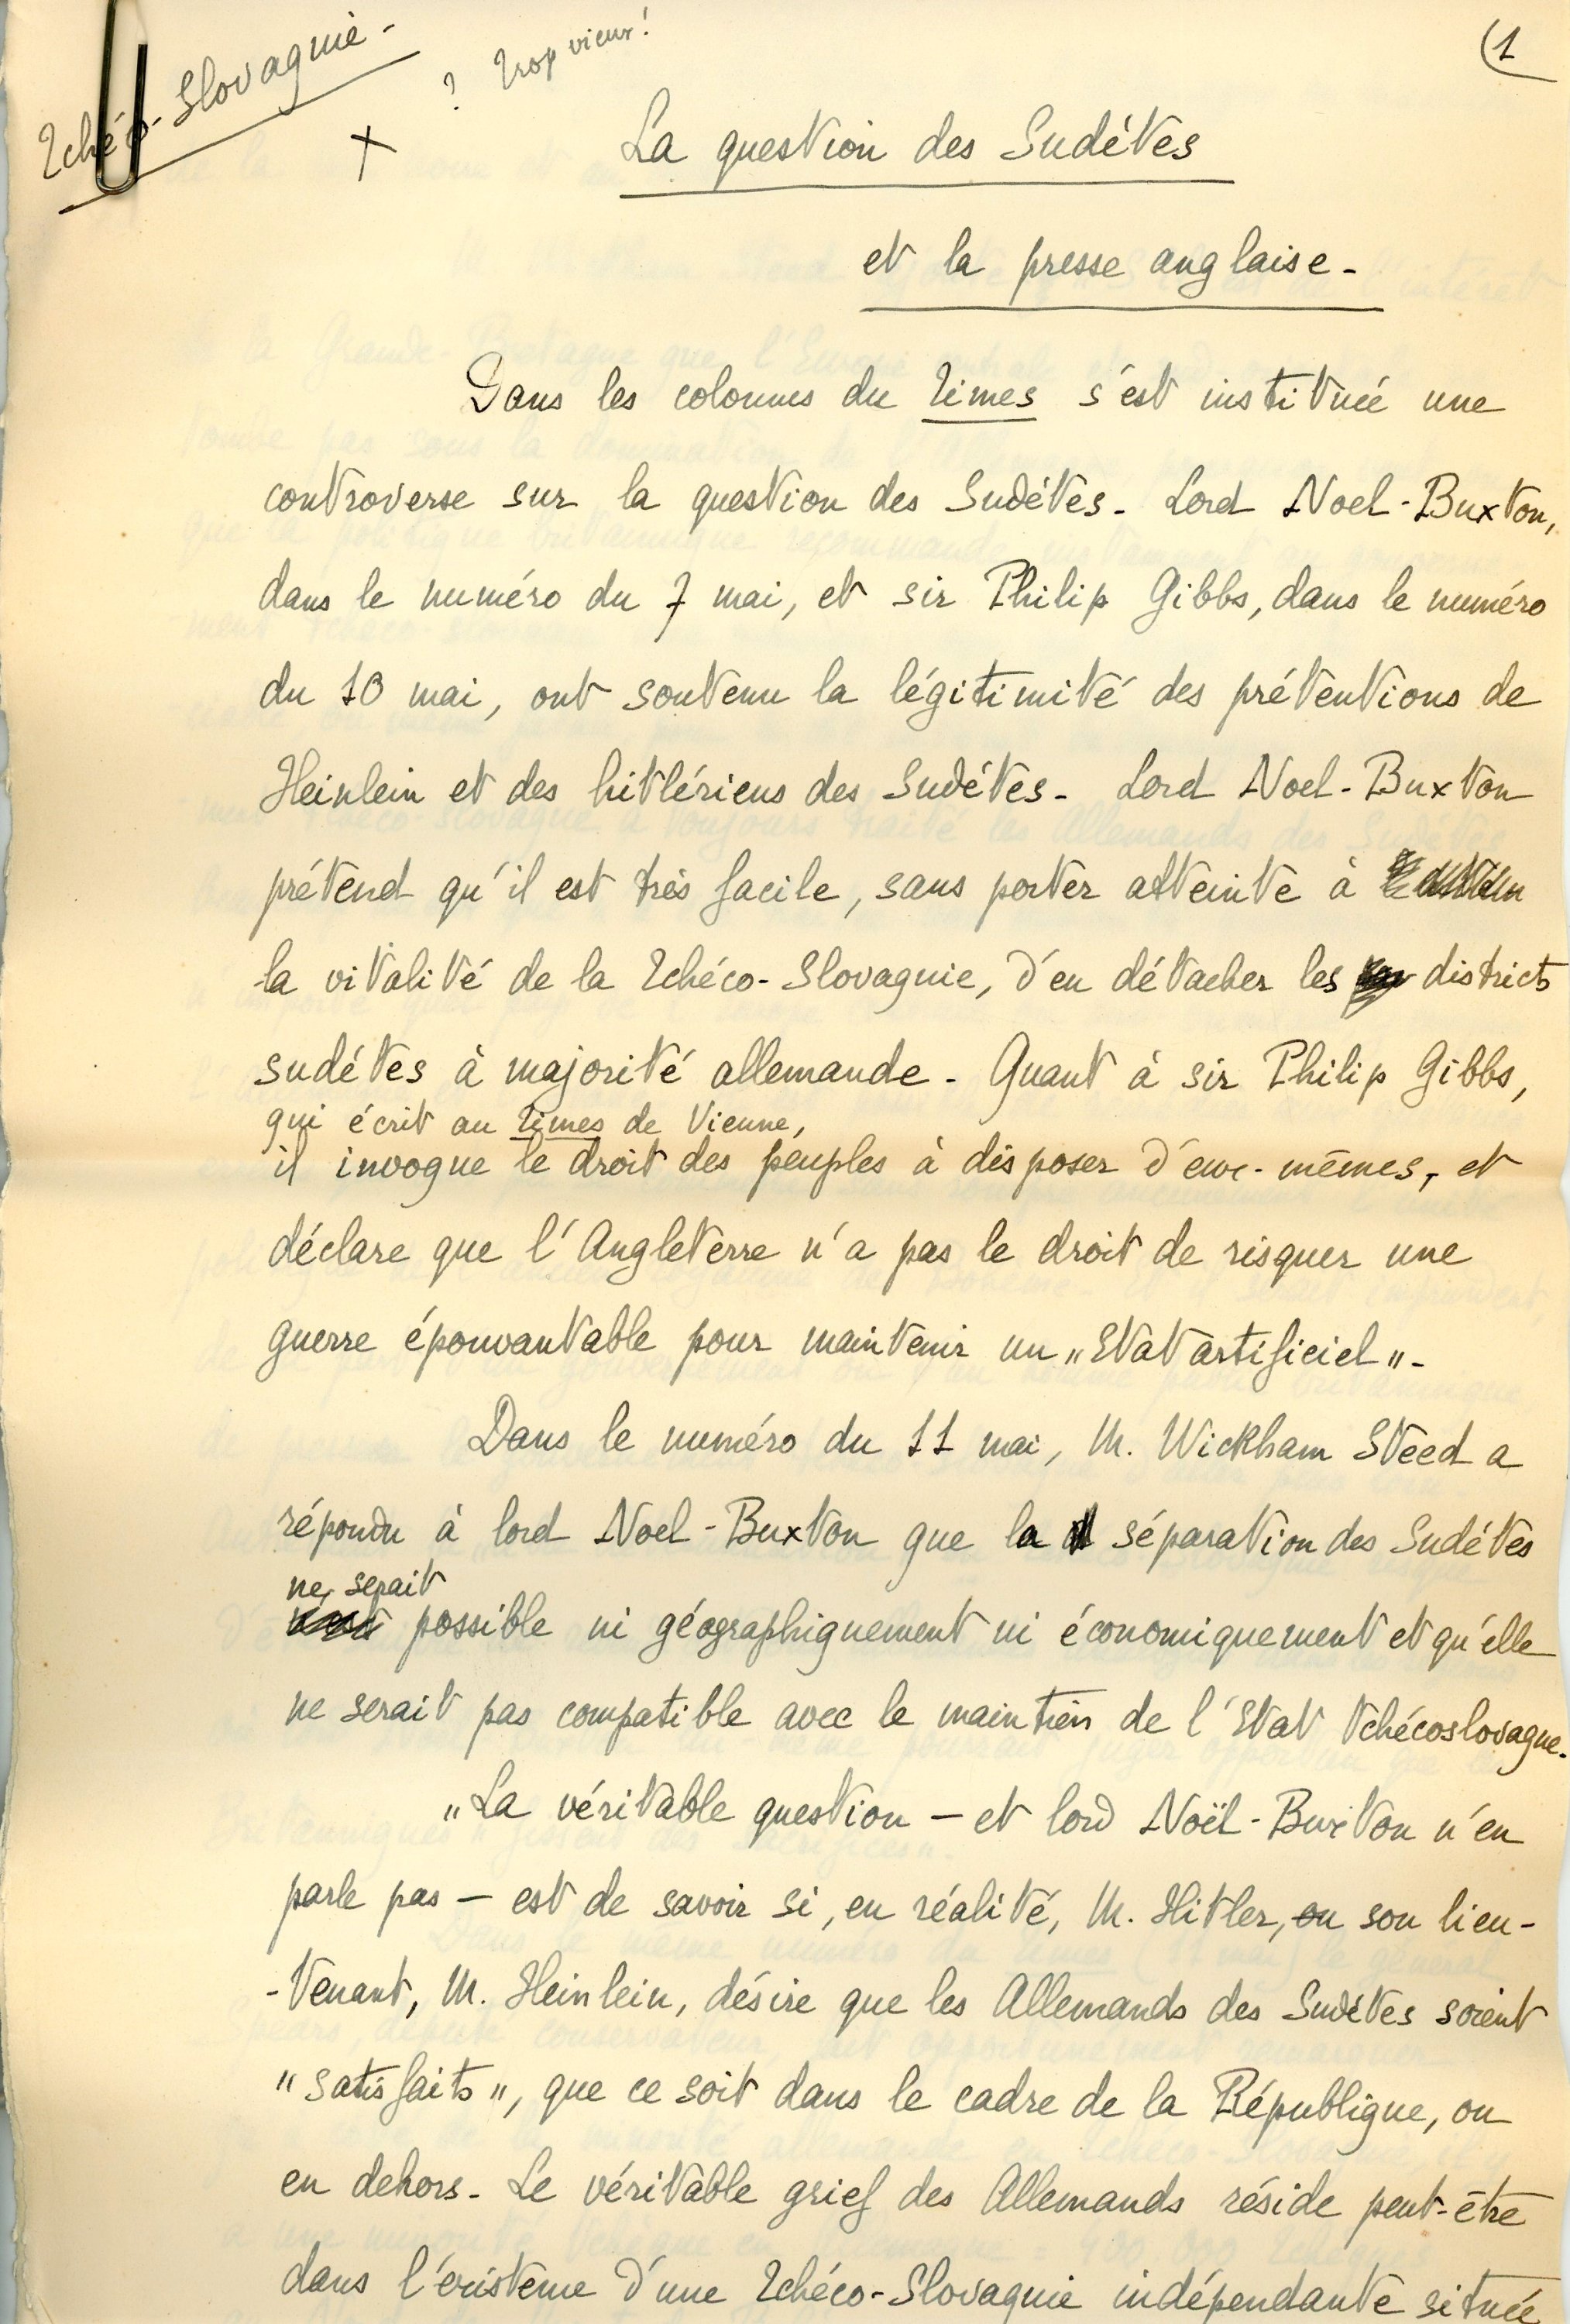 Tchéco-Slovaquie -
? Trop vieux!
X
(1
La question des Sudètes
et la presse anglaise -
Dans les colonnes du Times s'est instituée une
controverse sur la question des Sudètes - Lord Noel-Buxton,
dans le numéro du 7 mai, et sir Philip Gibbs, dans le numéro
du 10 mai, ont soutenu la légitimité des prétentions de
Heinlein et des hitlériens des Sudètes - Lord Noel-Buxton
prétend qu'il est très facile, sans porter atteinte à
la vitalité de la Tchéco-Slovaquie, d'en détacher les districts
sudètes à majorité allemande - Quant à sir Philip Gibbs,
qui écrit au Times de Vienne,
il invoque le droit des peuples à disposer d'eux-mêmes, et
déclare que l'Angleterre n'a pas le droit de risquer une
guerre épouvantable pour maintenir un "Etat artificiel" -
Dans le numéro du 11 mai, M. Wickham Steed a
répondu à lord Noel-Buxton que la séparation des Sudètes
ne serait
possible ni géographiquement ni économiquement et qu'elle
ne serait pas compatible avec le maintien de l'Etat tchécoslovaque.
"La véritable question — et lord Noël-Buxton n'en
parle pas — est de savoir si, en réalité, M. Hitler, ou son lieu-
-tenant, M. Heinlein, désire que les Allemands des Sudètes soient
"satisfaits", que ce soit dans le cadre de la République, ou
en dehors - Le véritable grief des Allemands réside peut-être
dans l'existence d'une Tchéco-Slovaquie indépendante située